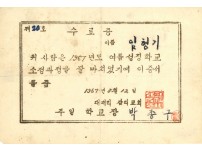 제20호
수료증
이름 임형기
위 사람은 1967년도 여름성경학교
소정과정을 잘 마치었기에 이 증서
를 줌
1967년 8월 12일
교회
주일 학교장 박